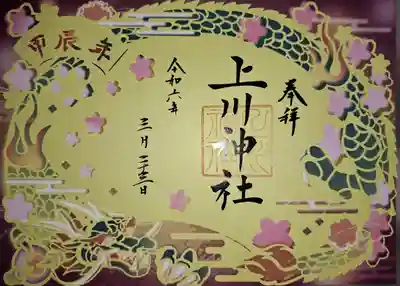 奉拝
上川神社
令和六年
三月二十三日
辰